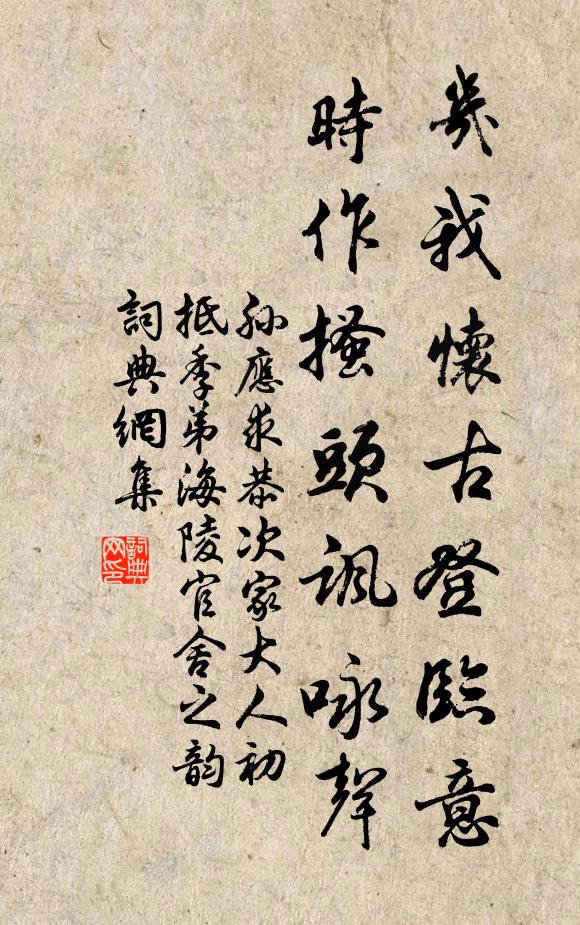 幾我懷古登臨意
時作搔頭諷咏聲
孫應求恭次家大人初
抵季弟海陵官舍之韵
詞典網集
詞典
网印